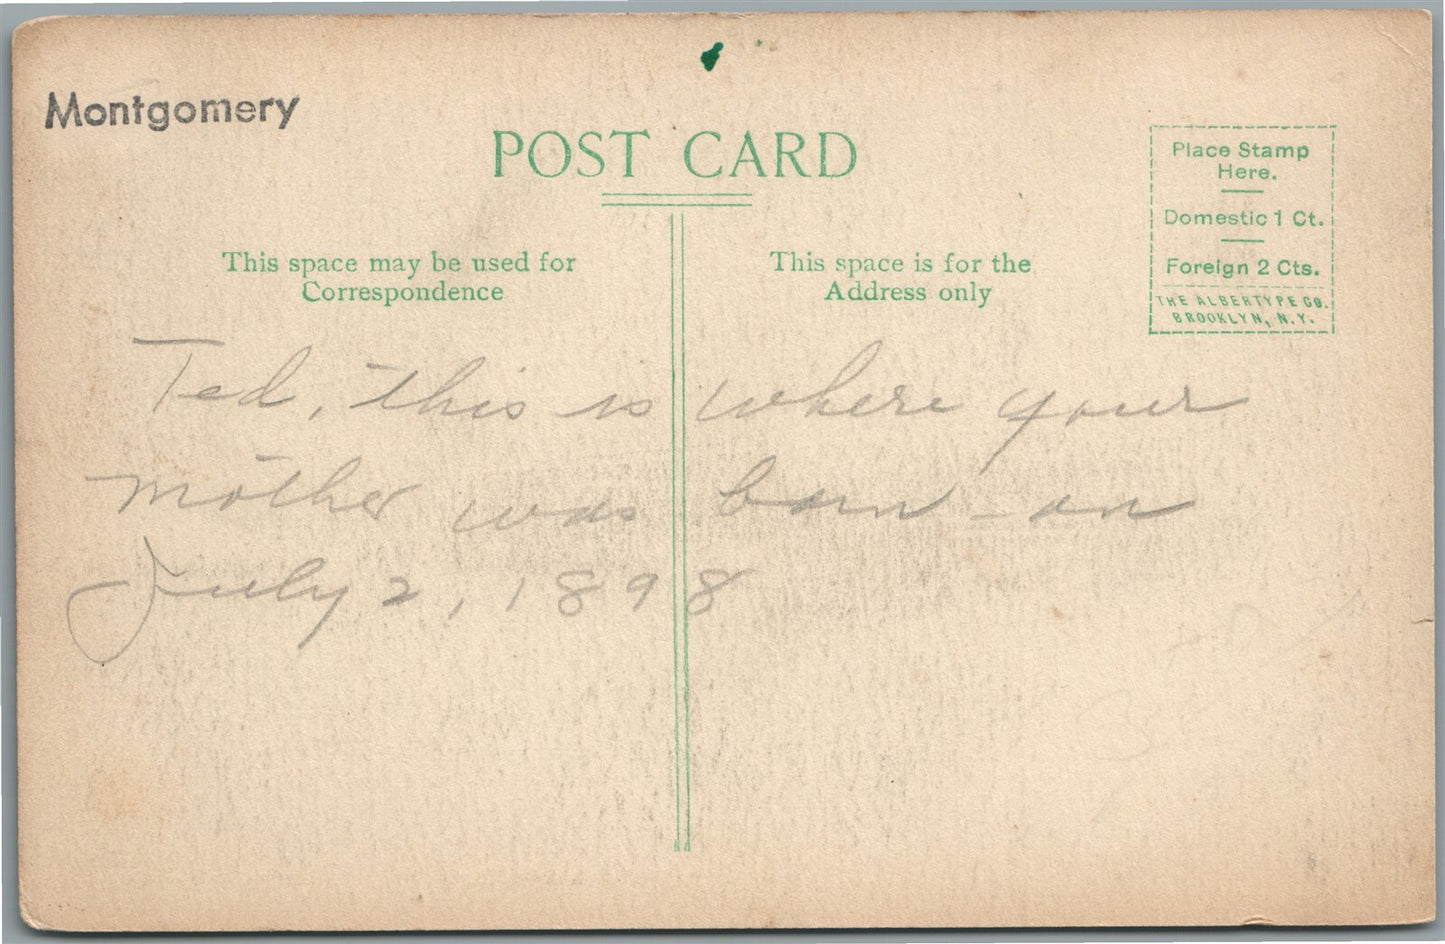 Montgomery
POST CARD
This space may be used for
Correspondence
This space is for the
Address only
Place Stamp
Here.
Domestic 1 Ct.
Foreign 2 Cts.
THE ALBERTYPE CO.
BROOKLYN, N.Y.
Ted, this is where your
mother was born - on
July 2, 1898